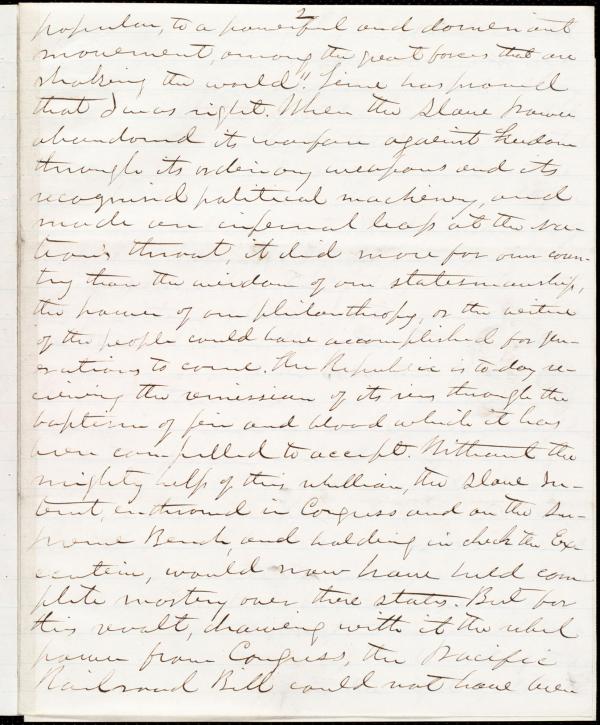 2
popular, to a powerful and dominant
movement, among the great forces that are
shaking the world." Time has proved
that I was right. When the Slave Power
abandoned its warfare against freedom
through its ordinary weapons and its
recognized political machinery, and
made an infernal leap at the na-
tion's throat, it did more for our coun-
try than the wisdom of our statesmanship,
the power of our philanthropy, or the virtue
of the people could have accomplished for gen-
erations to come. The Republic is to-day re-
ceiving the remission of its sins through the
baptism of fire and blood which it has
been compelled to accept. Without the
mighty help of this rebellion, the Slave In-
terest, enthroned in Congress and on the Su-
preme Bench, and holding in check the Ex-
ecutive, would now have held com
plete mastery over these states. But for
this revolt, drawing with it the rebel
power from Congress, the Pacific
Railroad Bill could not have been